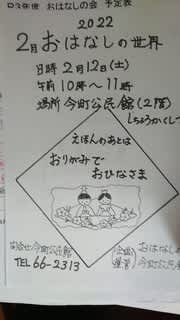 R3年度 おはなしの会 予定表
2022
2月おはなしの世界
日時 2月12日(土)
午前10時〜11時
場所 今町公民館(2階)
しちょうかくしつ
えほんのあとは
おりがみで
おひなさま
問合せ 今町公民館
TEL 66-2313
企画
運営
おはなし
今町公民